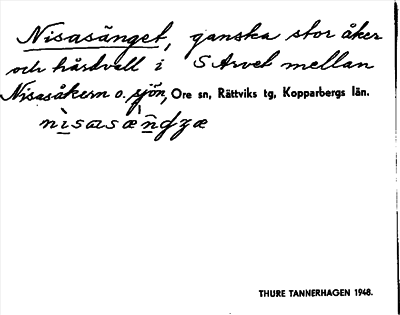 Nisasänget, ganska stor åker
och hårdvall i S Arvet mellan
Nisasåkern o. sjön, Ore sn, Rättviks tg, Kopparbergs län.
THURE TANNERHAGEN 1948.